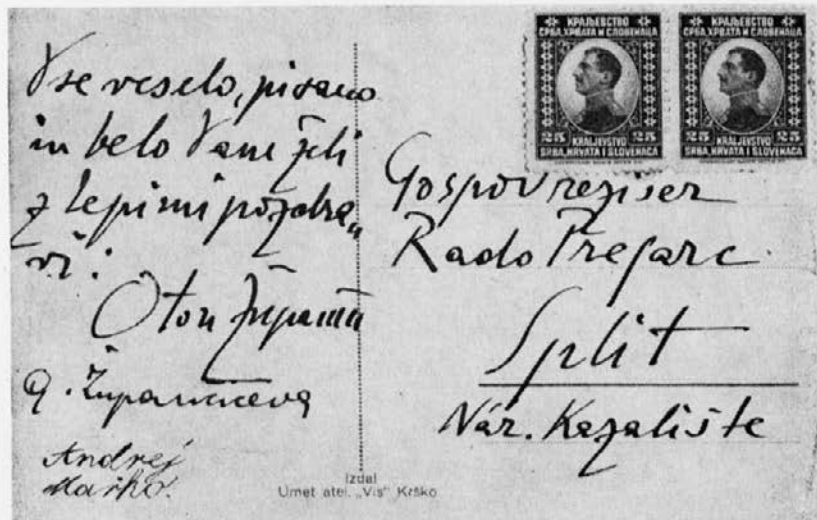 Vse veselo, pisano
in belo Vam želi
z lepimi pozdra„
vi:
Oton Župančič
A. Župančičeva
Andrej
Marko.
КРАЉЕВСТВО
СРБА, ХРВАТА И СЛОВЕНАЦА
25 25
KRALJEVSTVO
SRBA, HRVATA I SLOVENACA
КРАЉЕВСТВО
СРБА, ХРВАТА И СЛОВЕНАЦА
25 25
KRALJEVSTVO
SRBA, HRVATA I SLOVENACA
Gospod režiser
Rado Pregarc.
Split
Nár. Kazalište
Izdal
Umet. atel. „Vis" Krško